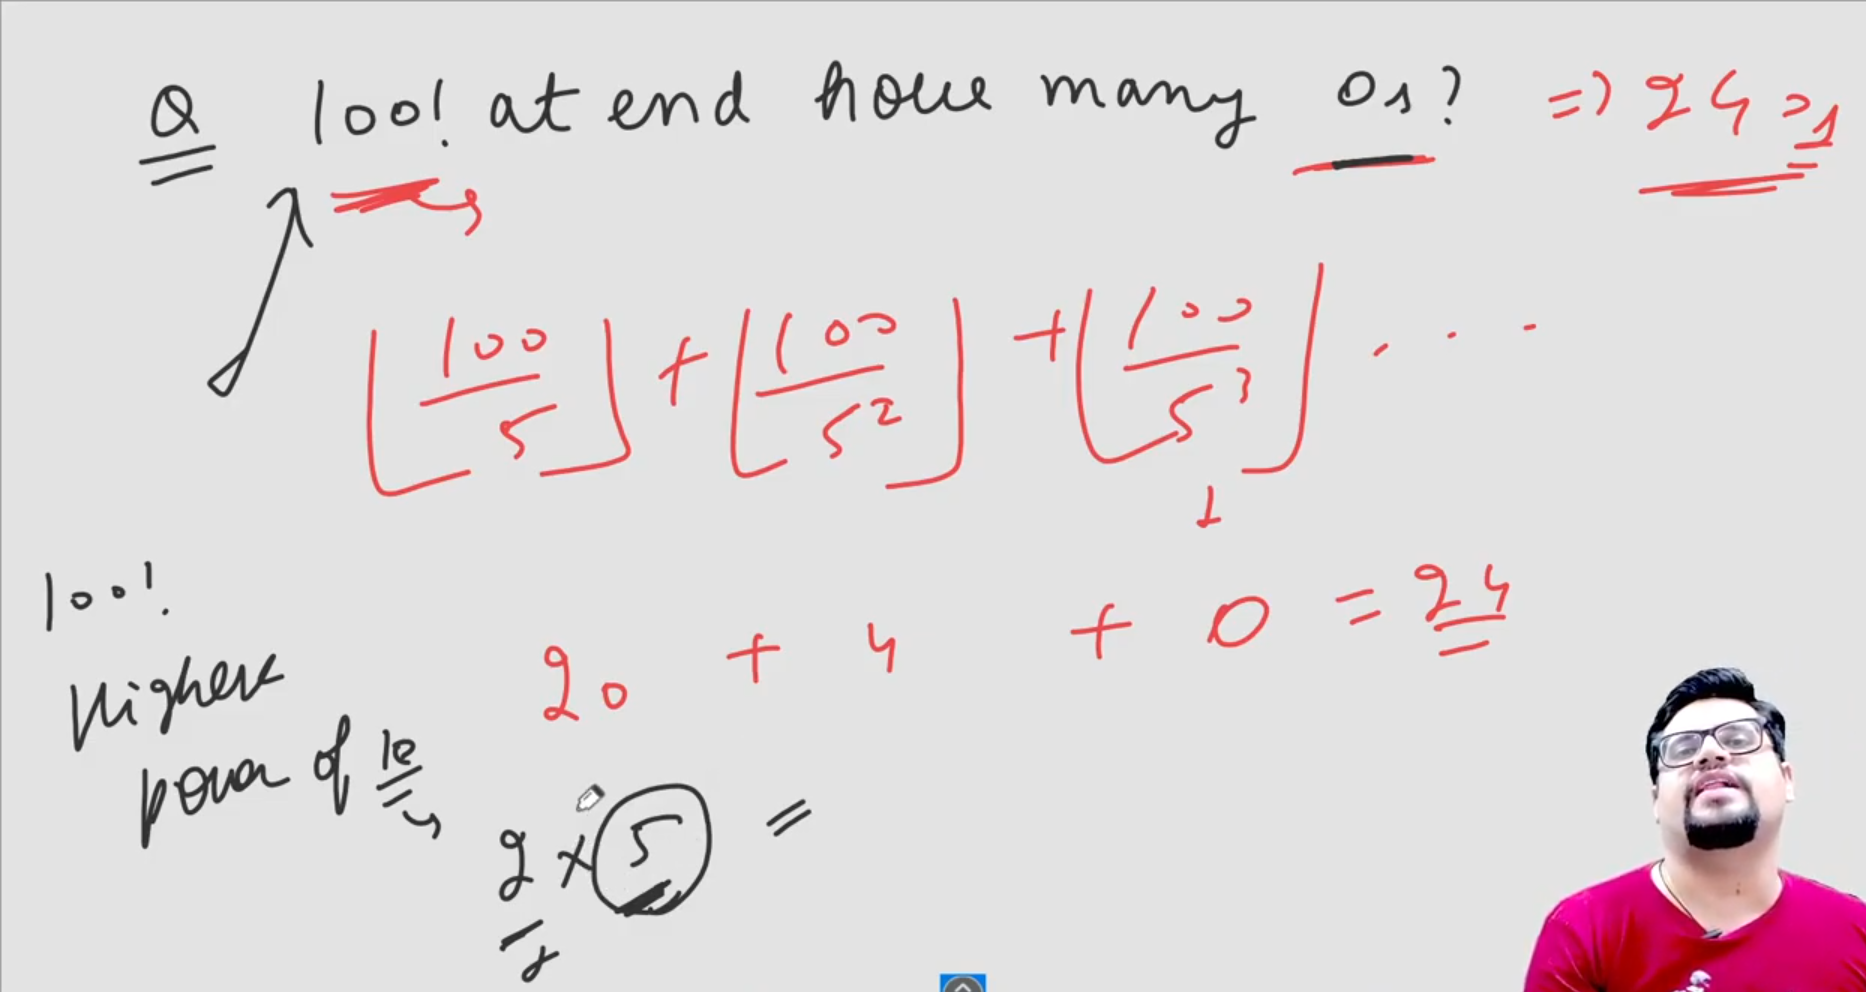 Q 100! at end how many 0s? => 24 0s
⌊100/5⌋ + ⌊100/5²⌋ + ⌊100/5³⌋ . . .
1
20 + 4 + 0 = 24
100!
Highest
power of 10
2 × 5 =